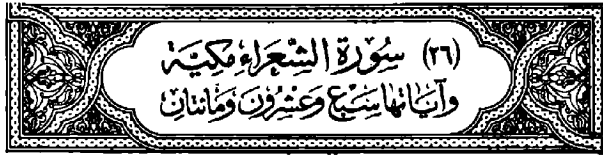 (٢٦) سُورَة الشُّعَرَاءِ مَكِيَّة
وَآيَاتُهَا سَبْع وَعَشْرُونَ وَمَائَتَانِ